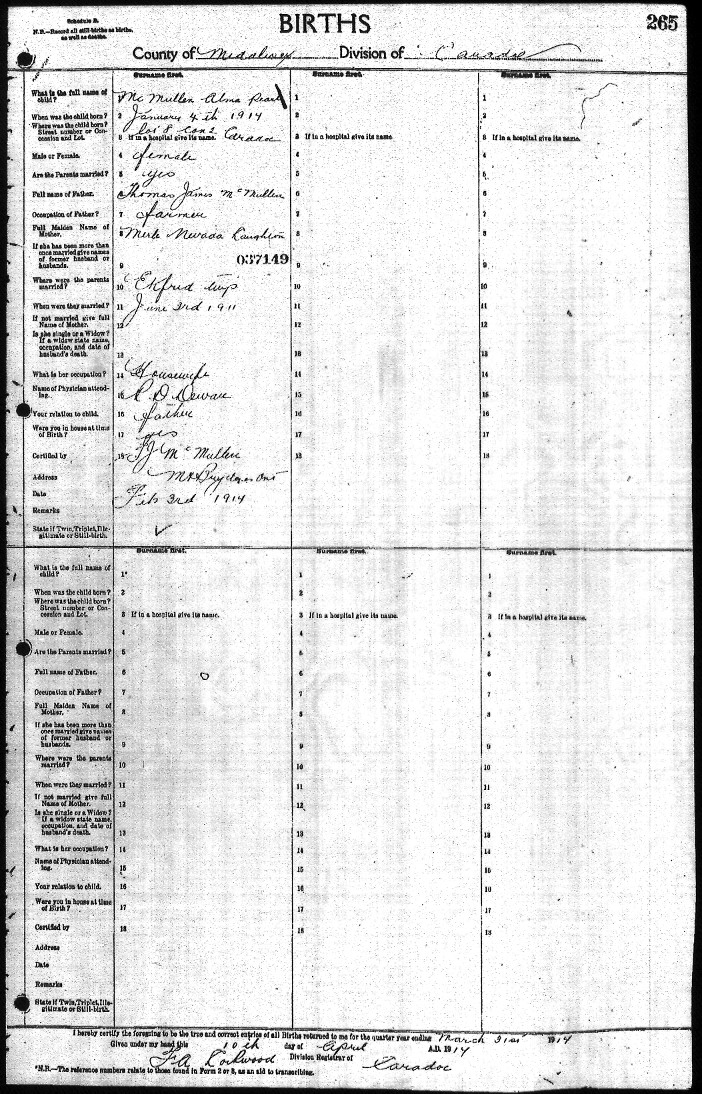 Schedule B.
N.B.—Record all still-births as births, as well as deaths.
BIRTHS
265
County of Middlesex Division of Caradoc
Surname first.
Surname first.
Surname first.
What is the full name of child?
1 McMullen Alma Pearl
1
1
When was the child born?
2 January 4th 1914
2
2
Where was the child born? Street number or Concession and Lot.
Lot 8 Con 2 Caradoc
3 If in a hospital give its name.
3 If in a hospital give its name.
3 If in a hospital give its name.
Male or Female.
4 female
4
4
Are the Parents married?
5 yes
5
5
Full name of Father.
6 Thomas James McMullen
6
6
Occupation of Father?
7 farmer
7
7
Full Maiden Name of Mother.
8 Merle Nevada Laughton
8
8
If she has been more than once married give names of former husband or husbands.
037149
9
9
9
Where were the parents married?
10 Ekfrid twp
10
10
When were they married?
11 June 3rd 1911
11
11
If not married give full Name of Mother.
12
12
12
Is she single or a Widow? If a widow state name, occupation, and date of husband's death.
13
13
13
What is her occupation?
14 Housewife
14
14
Name of Physician attending.
15 Dewar
15
15
Your relation to child.
16 father
16
16
Were you in house at time of Birth?
17 yes
17
17
Certified by
18 T J McMullen
18
18
Address
Mt Brydges Ont
Date
Feb 3rd 1914
Remarks
State if Twin, Triplet, Illegitimate or Still-birth.
Surname first.
Surname first.
Surname first.
What is the full name of child?
1
1
1
When was the child born?
2
2
2
Where was the child born? Street number or Concession and Lot.
3 If in a hospital give its name.
3 If in a hospital give its name.
3 If in a hospital give its name.
Male or Female.
4
4
4
Are the Parents married?
5
5
5
Full name of Father.
6
6
6
Occupation of Father?
7
7
7
Full Maiden Name of Mother.
8
8
8
If she has been more than once married give names of former husband or husbands.
9
9
9
Where were the parents married?
10
10
10
When were they married?
11
11
11
If not married give full Name of Mother.
12
12
12
Is she single or a Widow? If a widow state name, occupation, and date of husband's death.
13
13
13
What is her occupation?
14
14
14
Name of Physician attending.
15
15
15
Your relation to child.
16
16
16
Were you in house at time of Birth?
17
17
17
Certified by
18
18
18
Address
Date
Remarks
State if Twin, Triplet, Illegitimate or Still-birth.
I hereby certify the foregoing to be the true and correct entries of all Births returned to me for the quarter year ending March 31st 1914
Given under my hand this 10th day of April A.D. 1914
F A Lockwood Division Registrar of Caradoc
*N.B.—The reference numbers relate to those found in Form 2 or 3, as an aid to transcribing.